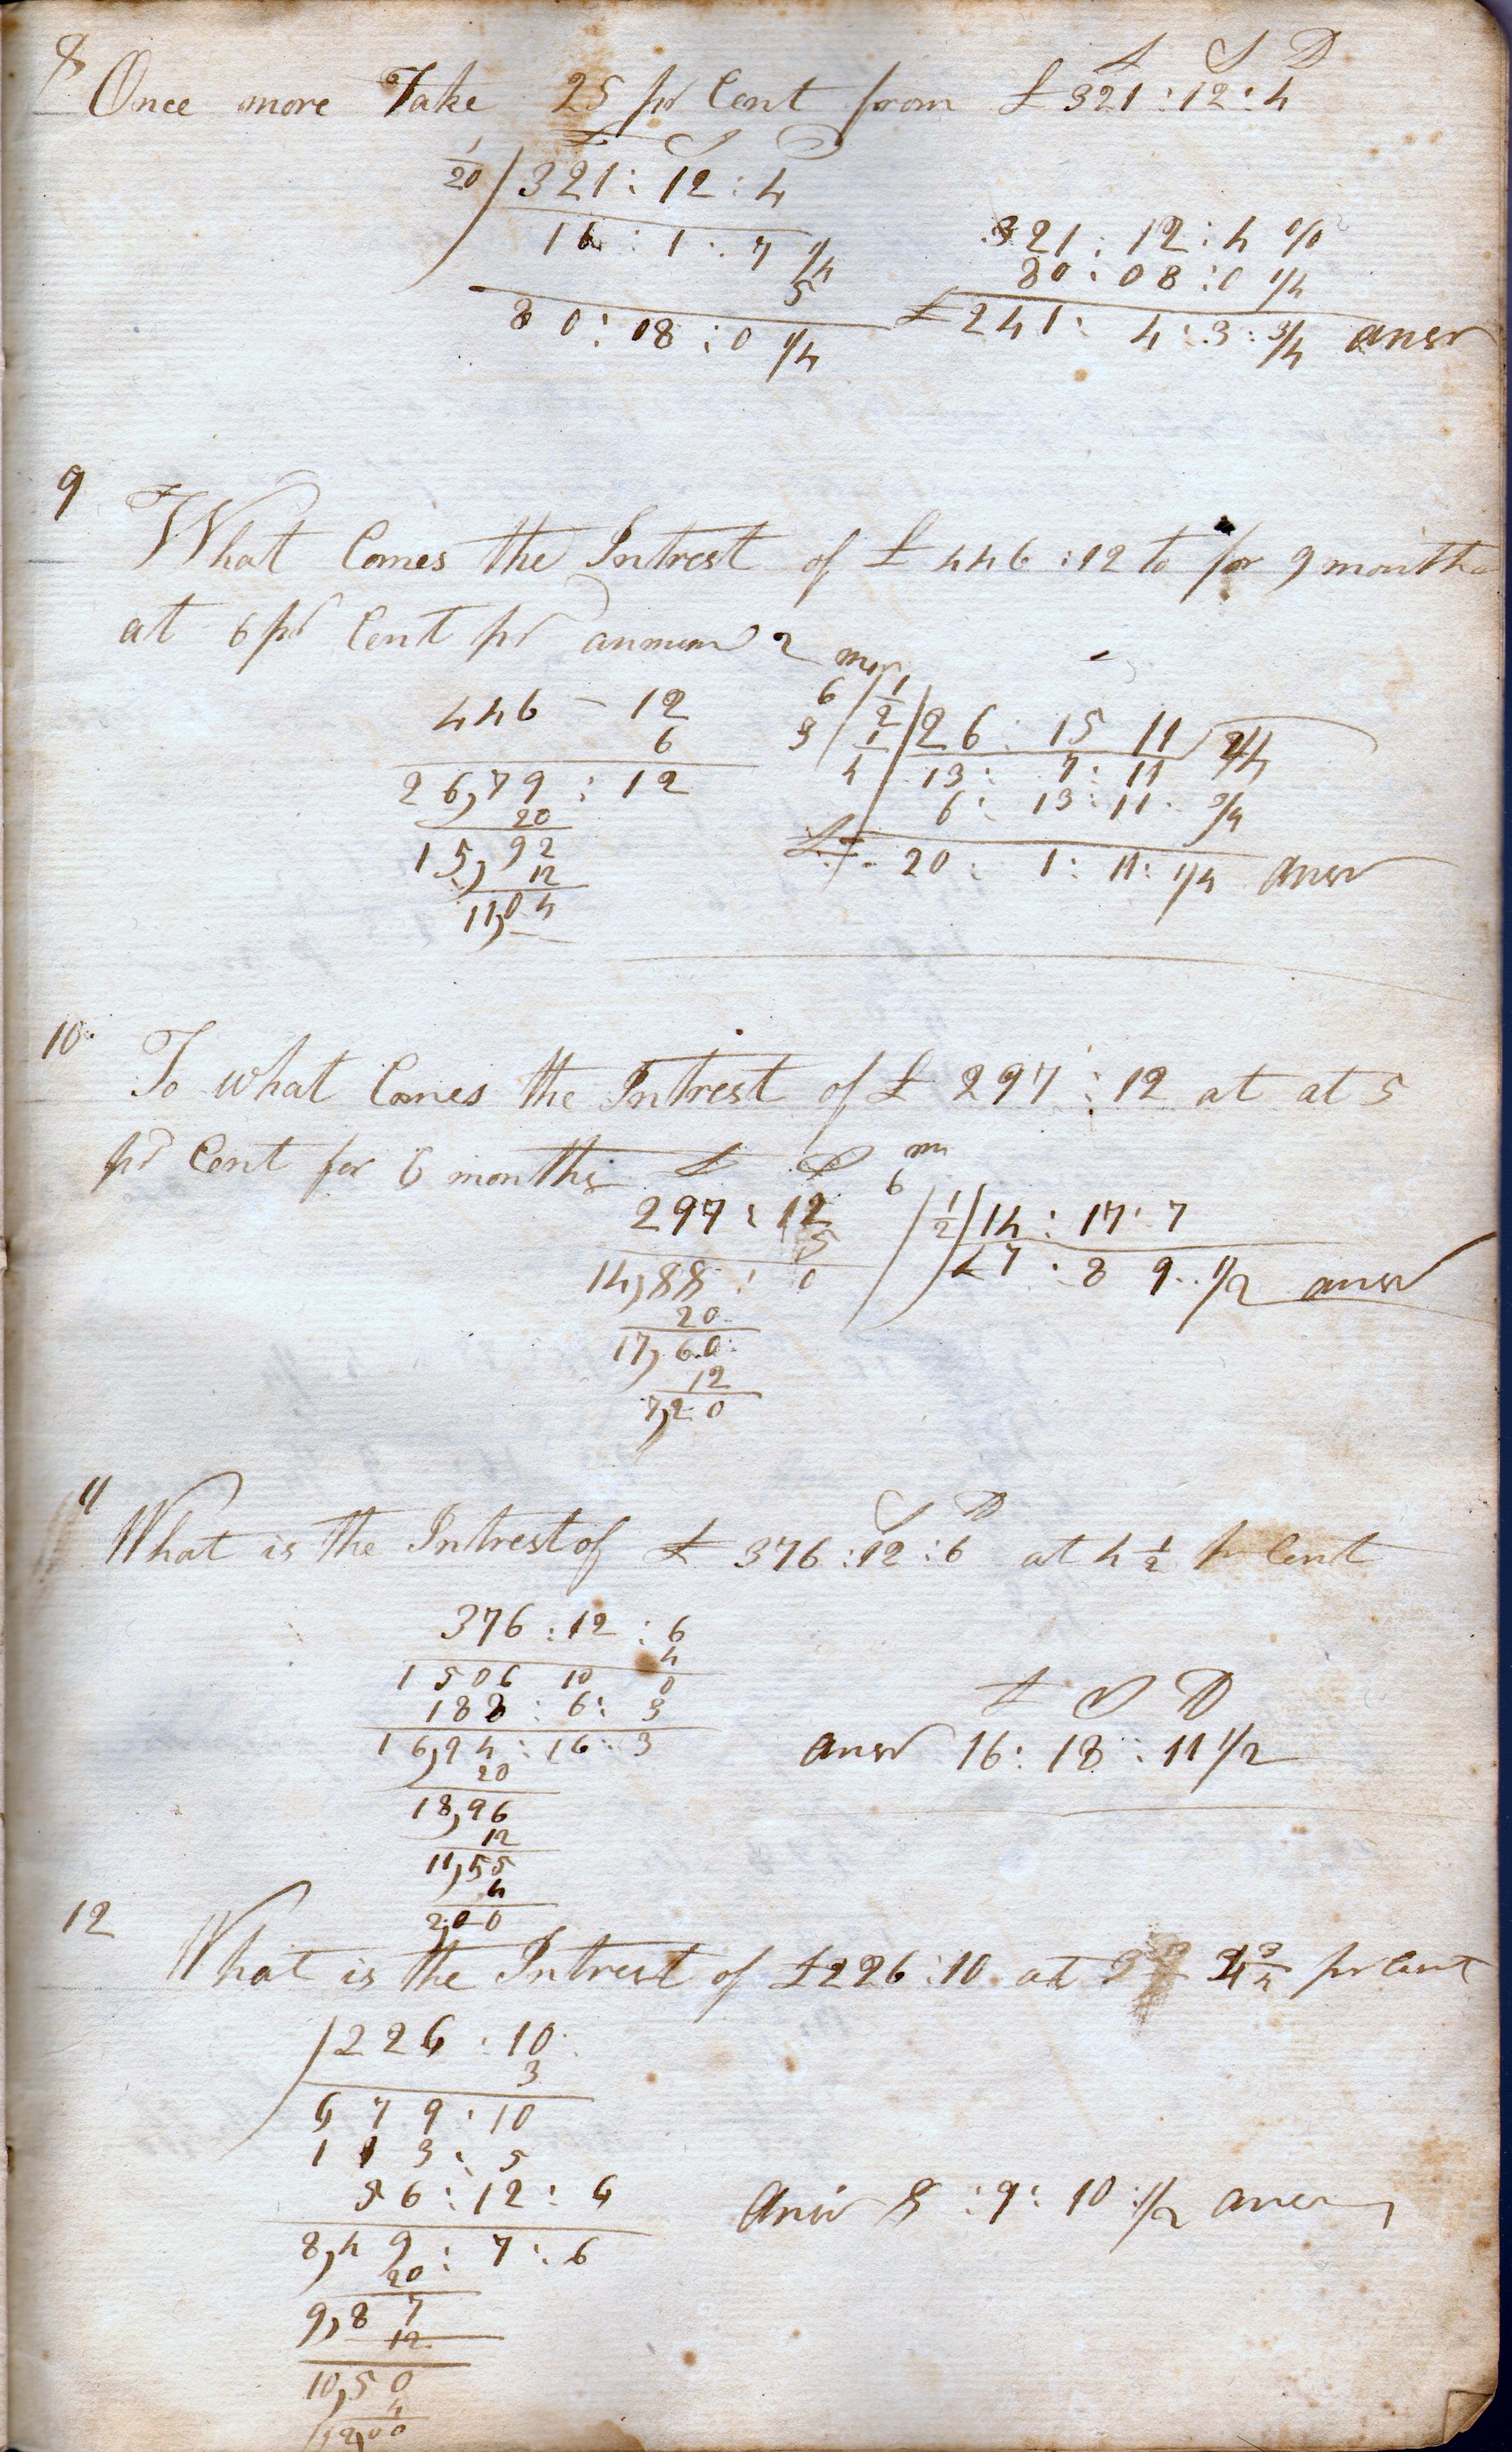 8 Once more Take 25 pr Cent from £ 321 : 12 : 4
£ S D
£ S D
1/20 321 : 12 : 4
16 : 1 : 7 1/4
5
80 : 08 : 0 1/4
321 : 12 : 4 0/0
80 : 08 : 0 1/4
£ 241 : 4 : 3 : 3/4 answ
9 What Comes the Intrest of £ 446 : 12 to for 9 months
at 6 pr Cent pr annum ?
446 - 12
6
26,79 : 12
20
15,92
12
11,04
mo
6 1/2 26 : 15 11
3 1/4 13 : 7 : 11
6 : 13 : 11 : 3/4
£ 20 : 1 : 11 : 1/4 answ
10 To what Comes the Intrest of £ 297 : 12 at at 5
pr Cent for 6 months
£ S
297 : 12
5
14,88 : 0
20
17,60
12
7,20
mo
6 1/2 14 : 17 : 7
£ 7 : 8 9 .. 1/2 answ
11 What is the Intrest of £ 376 : 12 : 6 at 4 1/2 pr Cent
S D
376 : 12 : 6
4
1506 10 0
188 : 6 : 3
16,94 : 16 : 3
20
18,96
12
11,55
4
2,00
£ S D
answ 16 : 18 : 11 1/2
12 What is the Intrest of £226 : 10 at 3 3/4 pr Cent
226 : 10
3
679 : 10
113 : 5
56 : 12 : 6
8,49 : 7 : 6
20
9,87
12
10,50
4
2,00
Answ 8 : 9 : 10 : 1/2 answ